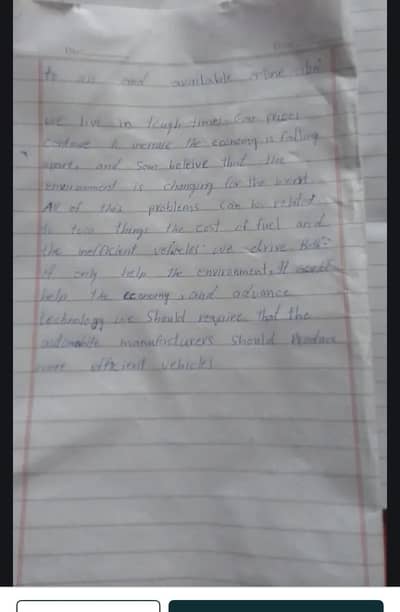 to us and available online
we live in tough times. Gas prices
continue to increase the economy is falling
apart, and Some beleive that the
environment is changing for the worst.
All of this problems can be
to two things the cost of fuel and
the inefficient vehicles we drive
only help the environment, It
help the economy, and advance
technology we Should require that the
automobile manufacturers Should Produce
more efficient vehicles